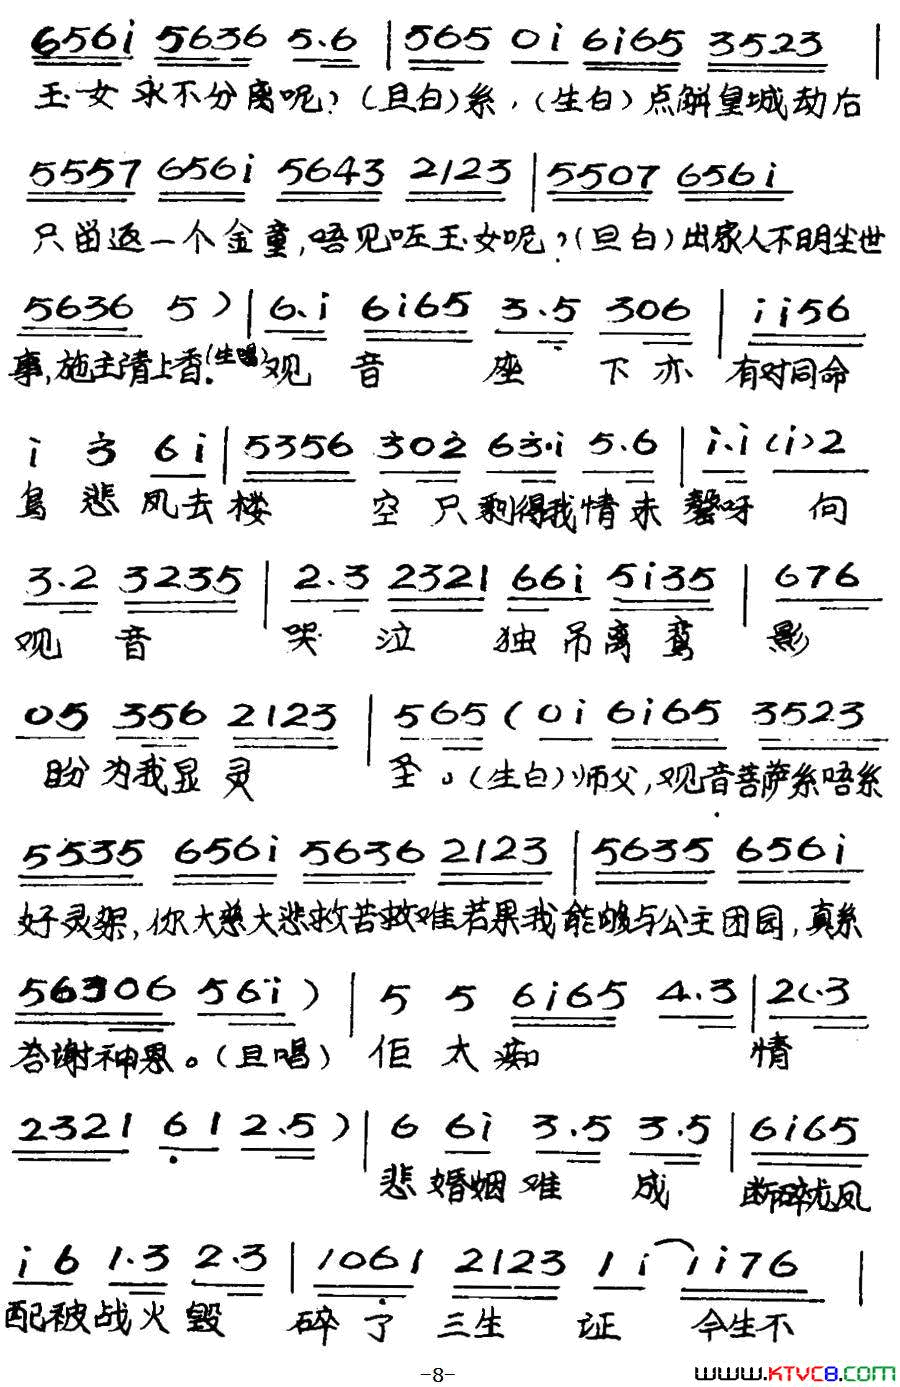 656i 5636 5.6 | 565 0i 6i65 3523 |
玉女永不分离呢?(旦白)系,(生白)点解皇城劫后
5557 656i 5643 2123 | 5507 656i
只留返一个金童,唔见咗玉女呢?(旦白)出家人不明尘世
5636 5 ) | 6.i 6i65 3.5 306 | ii56
事,施主请上香.(生唱)观音座下亦有对同命
i 3 6i | 5356 302 63.i 5.6 | i.i (i)2
鸟悲凤去楼空只剩得我情未罄呀向
3.2 3235 | 2.3 2321 66i 5i35 | 676
观音哭泣独吊离鸾影
05 356 2123 | 565 ( 0i 6i65 3523
盼为我显灵圣。(生白)师父,观音菩萨系唔系
5535 656i 5636 2123 | 5635 656i
好灵架,你大慈大悲救苦救难若果我能够与公主团园,真系
56306 56i ) | 5 5 6i65 4.3 | 2(.3
答谢神恩。(旦唱)佢太痴情
2321 61 2.5 ) | 6 6i 3.5 3.5 | 6i65
悲婚姻难成断碎龙凤
i6 1.3 2.3 | 1061 2123 1i 1i76 |
配被战火毁碎了三生证今生不
-8-
WWW.KTVC8.COM